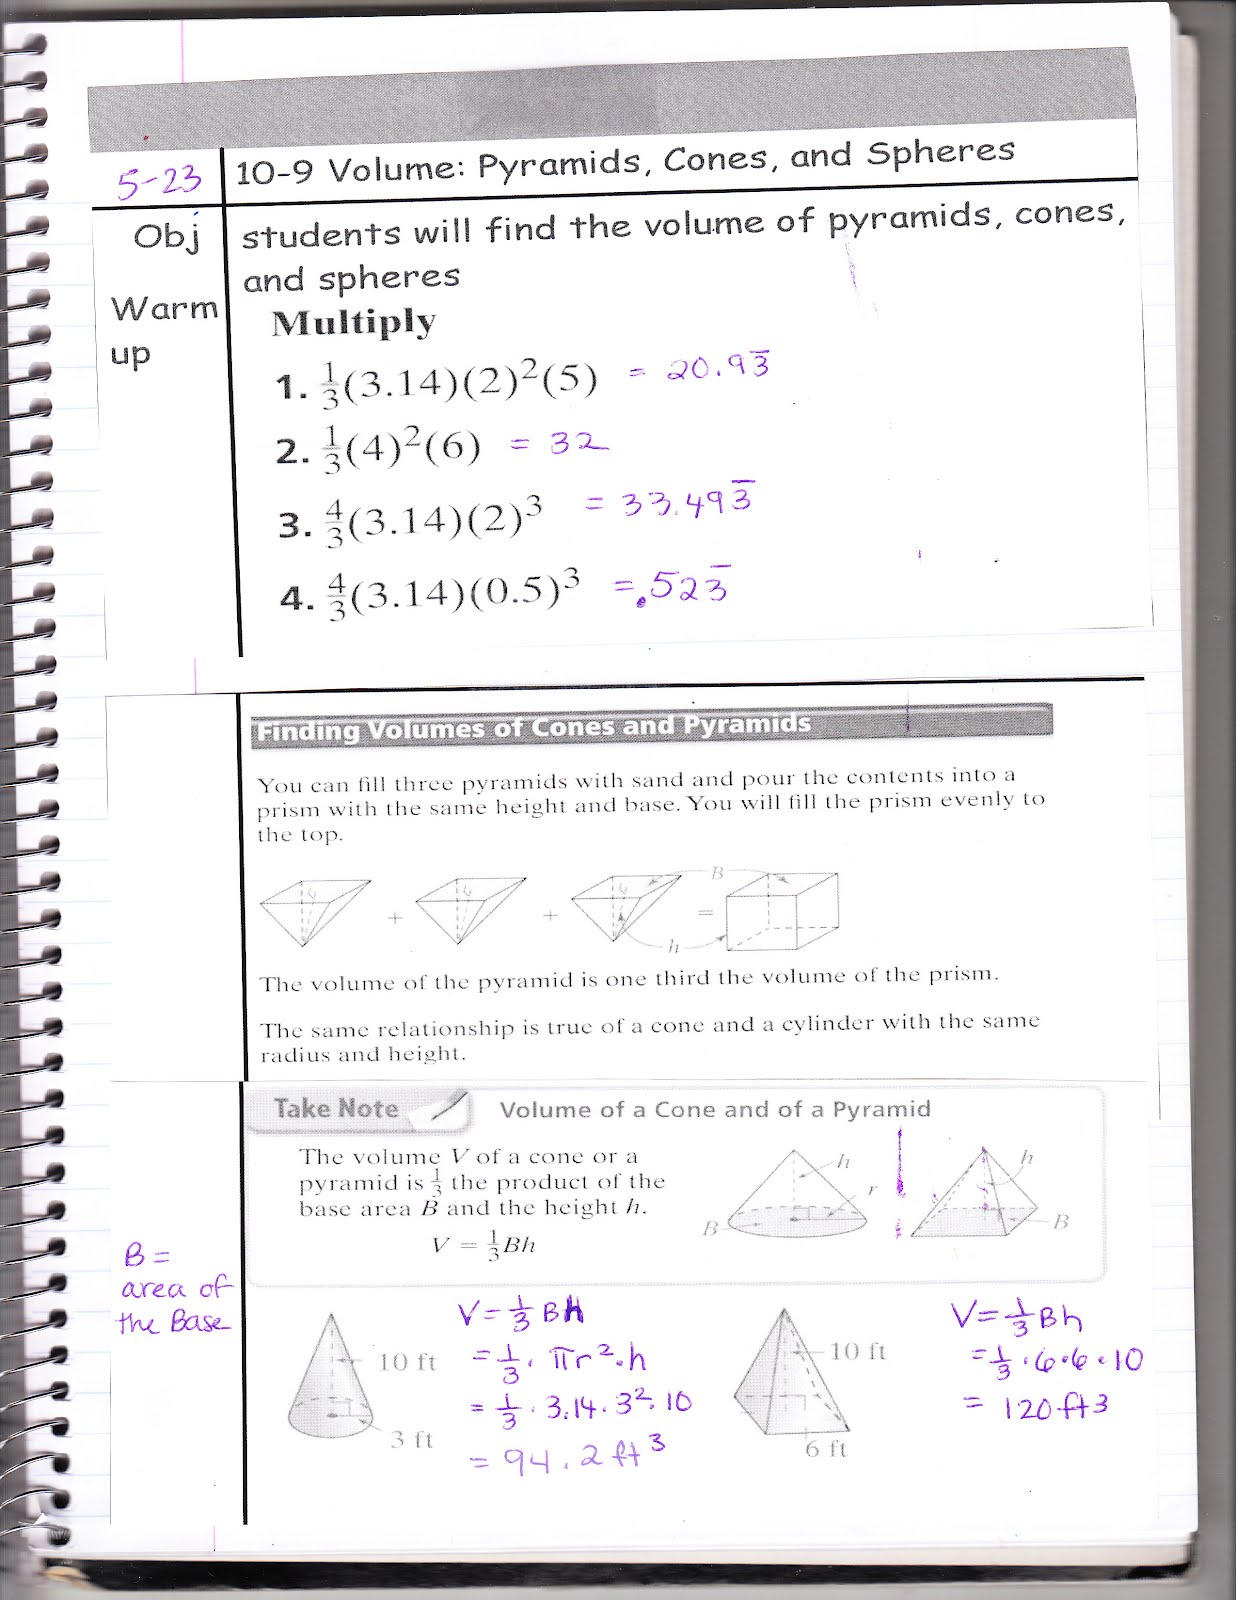 5-23
10-9 Volume: Pyramids, Cones, and Spheres
Obj
students will find the volume of pyramids, cones,
and spheres
Warm
up
Multiply
1. 1/3(3.14)(2)²(5) = 20.93̅
2. 1/3(4)²(6) = 32
3. 4/3(3.14)(2)³ = 33.493̅
4. 4/3(3.14)(0.5)³ = .523̅
Finding Volumes of Cones and Pyramids
You can fill three pyramids with sand and pour the contents into a
prism with the same height and base. You will fill the prism evenly to
the top.
B
+ + =
h
The volume of the pyramid is one third the volume of the prism.
The same relationship is true of a cone and a cylinder with the same
radius and height.
Take Note Volume of a Cone and of a Pyramid
The volume V of a cone or a
pyramid is 1/3 the product of the
base area B and the height h.
V = 1/3Bh
h
r
B
h
B
B =
area of
the Base
10 ft
3 ft
V = 1/3 Bh
= 1/3 · πr² · h
= 1/3 · 3.14 · 3² · 10
= 94.2 ft³
10 ft
6 ft
V = 1/3 Bh
= 1/3 · 6 · 6 · 10
= 120 ft3